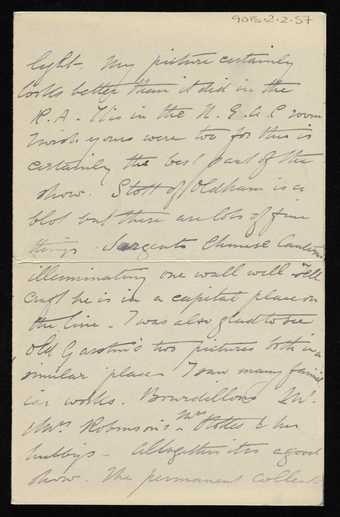 9015-2-2-57
light - My picture certainly
looks better than it did in the
R.A. It is in the N.E.A.C room
I wish yours were too for this is
certainly the best part of the
show. Stott of Oldham is a
blot but there are lots of fine
things. Sargents Chinese Lanterns
illuminating one wall well
he is in a capital place on
the line. I was also glad to see
old Gaskin's two pictures both in a
similar place I saw many famili
ar works. Bourdillons
Mrs Robinson's Mrs Stokes & her
hubbys - Altogether it is a good
show. The permanent collect